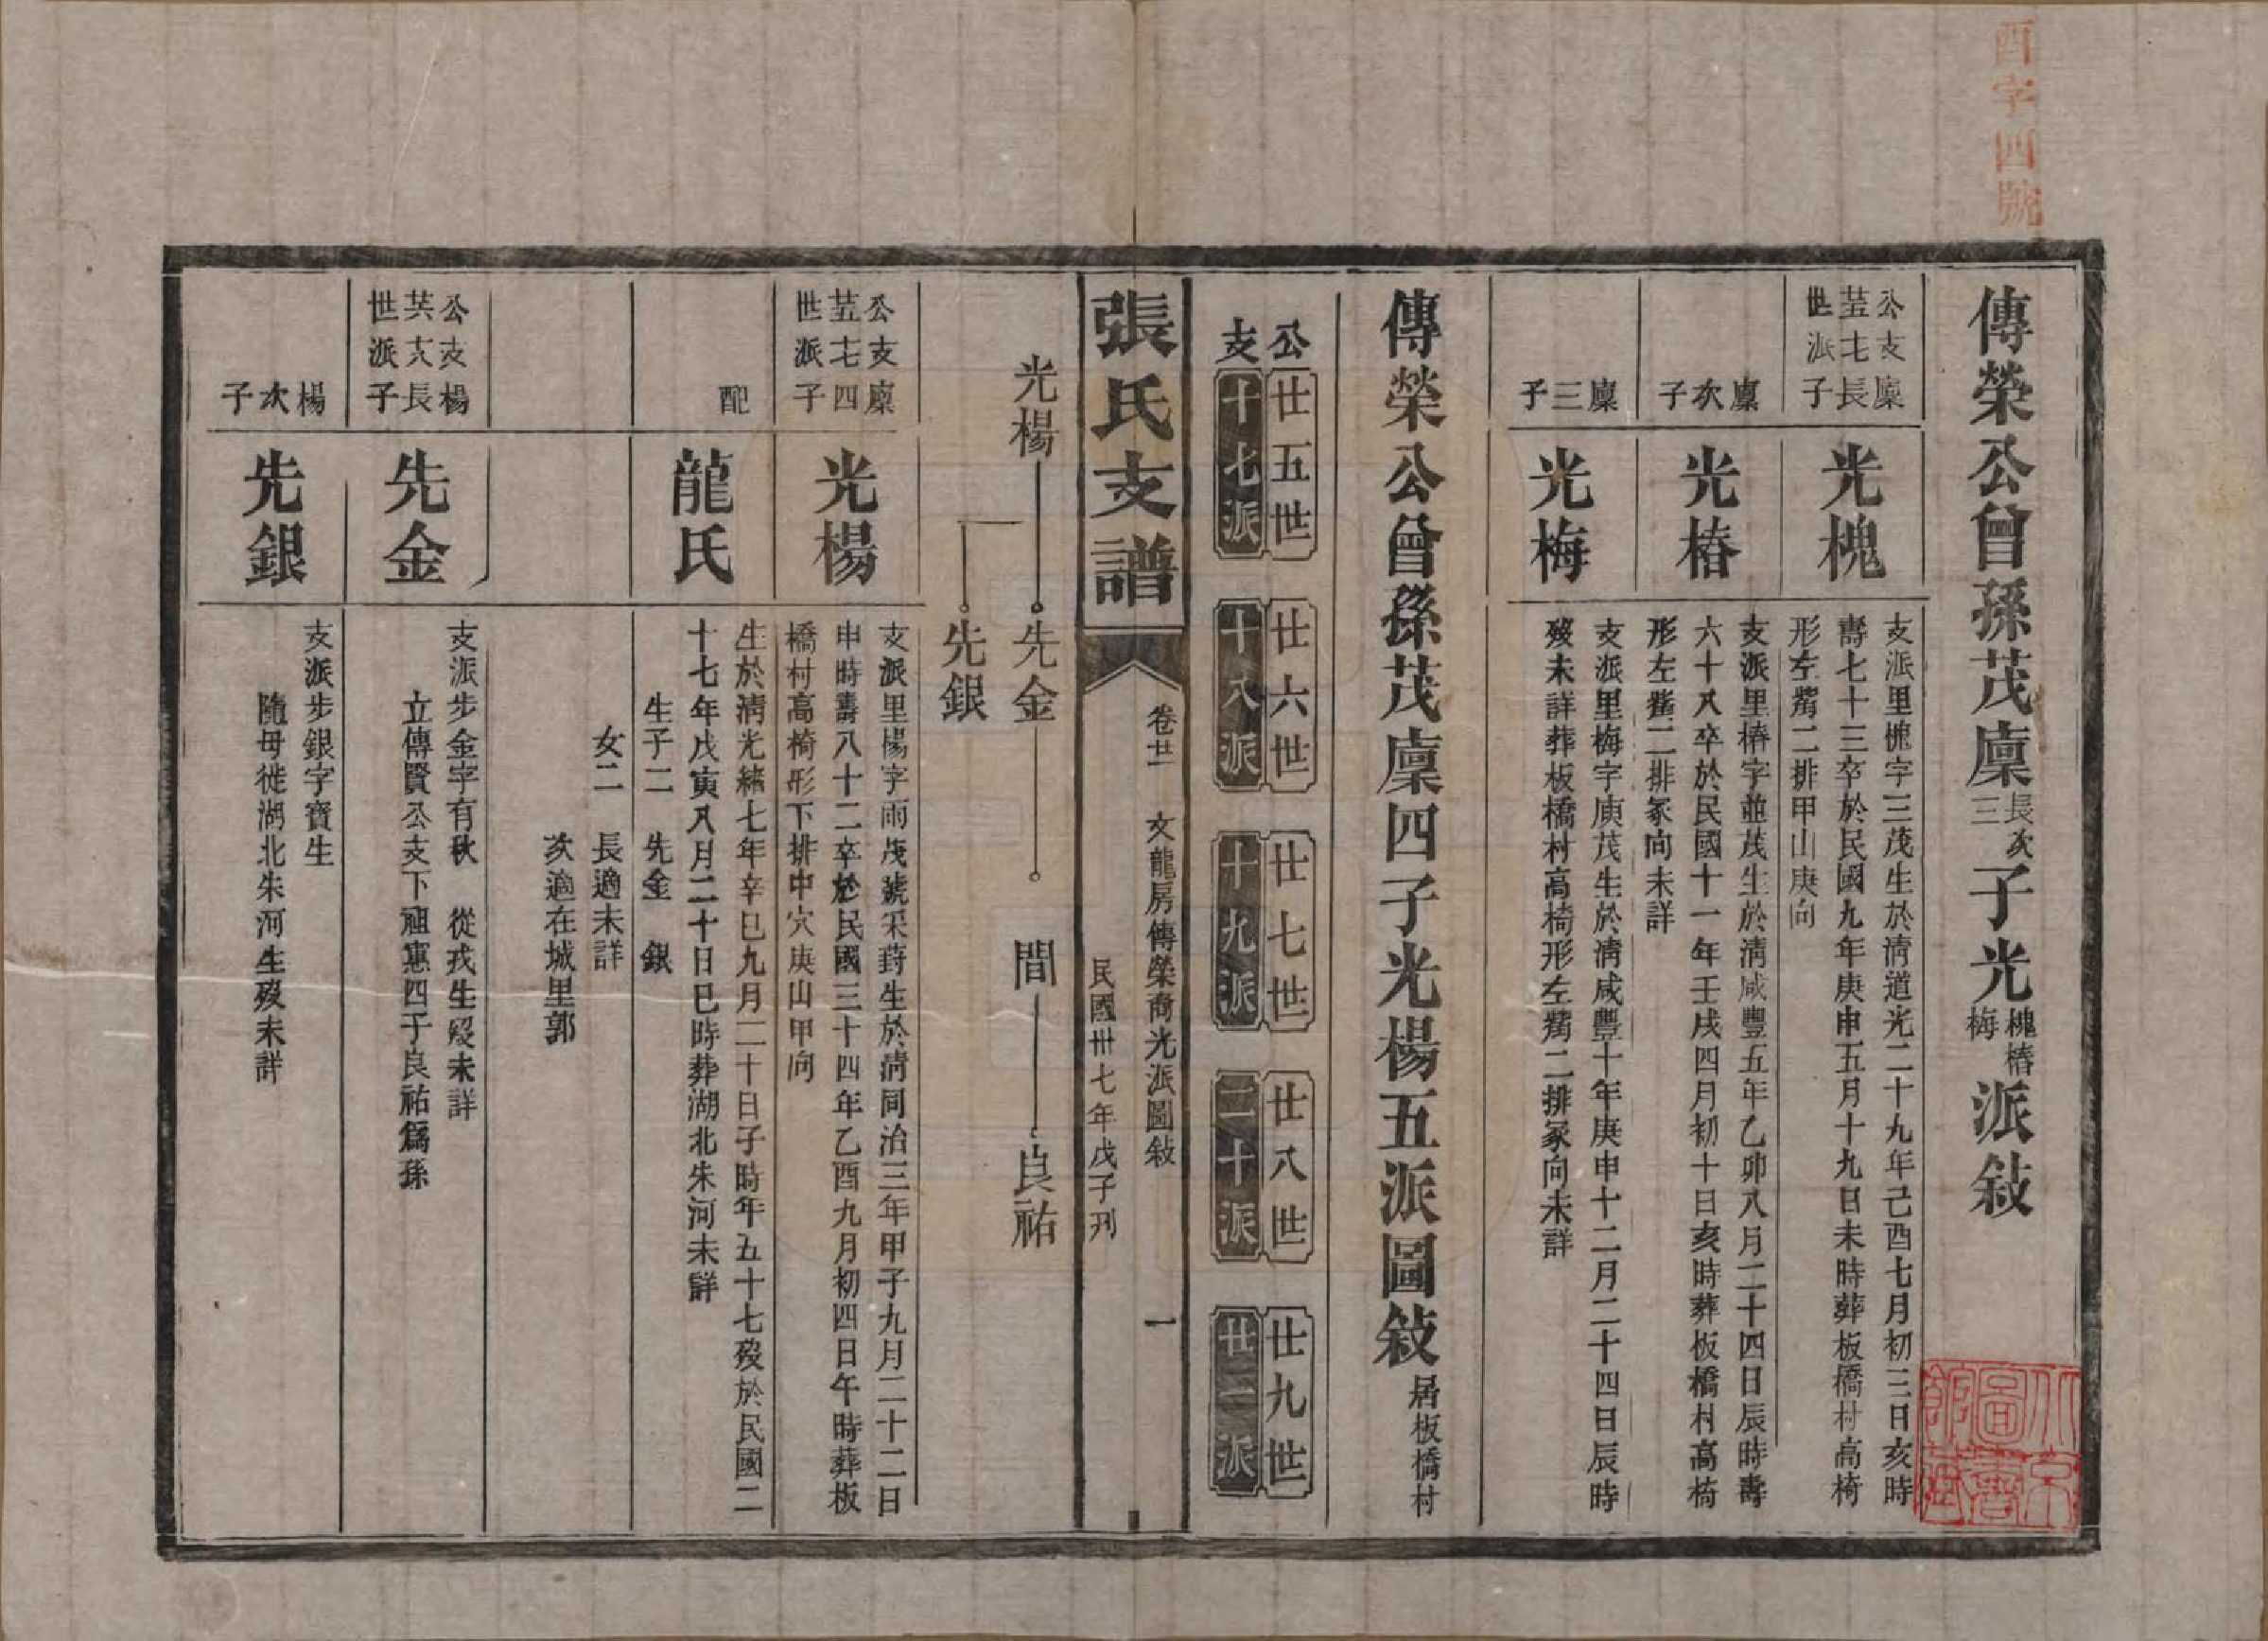 酉字四號
傳榮公曾孫茂廩長次三子光槐椿梅派敍
公支廩
廿五七長
世派子
光槐
支派里槐字三茂生於清道光二十九年己酉七月初三日亥時
壽七十三卒於民國九年庚申五月十九日未時葬板橋村高椅
形左觜二排甲山庚向
廩次子
光椿
支派里椿字並茂生於清咸豐五年乙卯八月二十四日辰時壽
六十八卒於民國十一年壬戌四月初十日亥時葬板橋村高椅
形左觜二排冢向未詳
廩三子
光梅
支派里梅字庾茂生於清咸豐十年庚申十二月二十四日辰時
歿未詳葬板橋村高椅形左觜二排冢向未詳
傳榮公曾孫茂廩四子光楊五派圖敍 居板橋村
公 廿五世 廿六世 廿七世 廿八世 廿九世
支 十七派 十八派 十九派 二十派 廿一派
張氏支譜
卷廿一 文龍房傳榮裔光派圖敍 一
民國卅七年戊子刊
光楊 先金 間 良祐
先銀
公支廩
廿五七四
世派子
光楊
支派里楊字雨茂號采葑生於清同治三年甲子九月二十二日
申時壽八十二卒於民國三十四年乙酉九月初四日午時葬板
橋村高椅形下排中穴庚山甲向
配
龍氏
生於清光緒七年辛巳九月二十日子時年五十七歿於民國二
十七年戊寅八月二十日巳時葬湖北朱河未詳
生子二 先金 銀
女二 長適未詳
次適在城里郭
公支楊
廿六八長
世派子
先金
支派步金字有秋 從戎生歿未詳
立傳賢公支下祖惠四子良祐爲孫
楊次子
先銀
支派步銀字寶生
隨母徙湖北朱河生歿未詳
北京圖書館藏